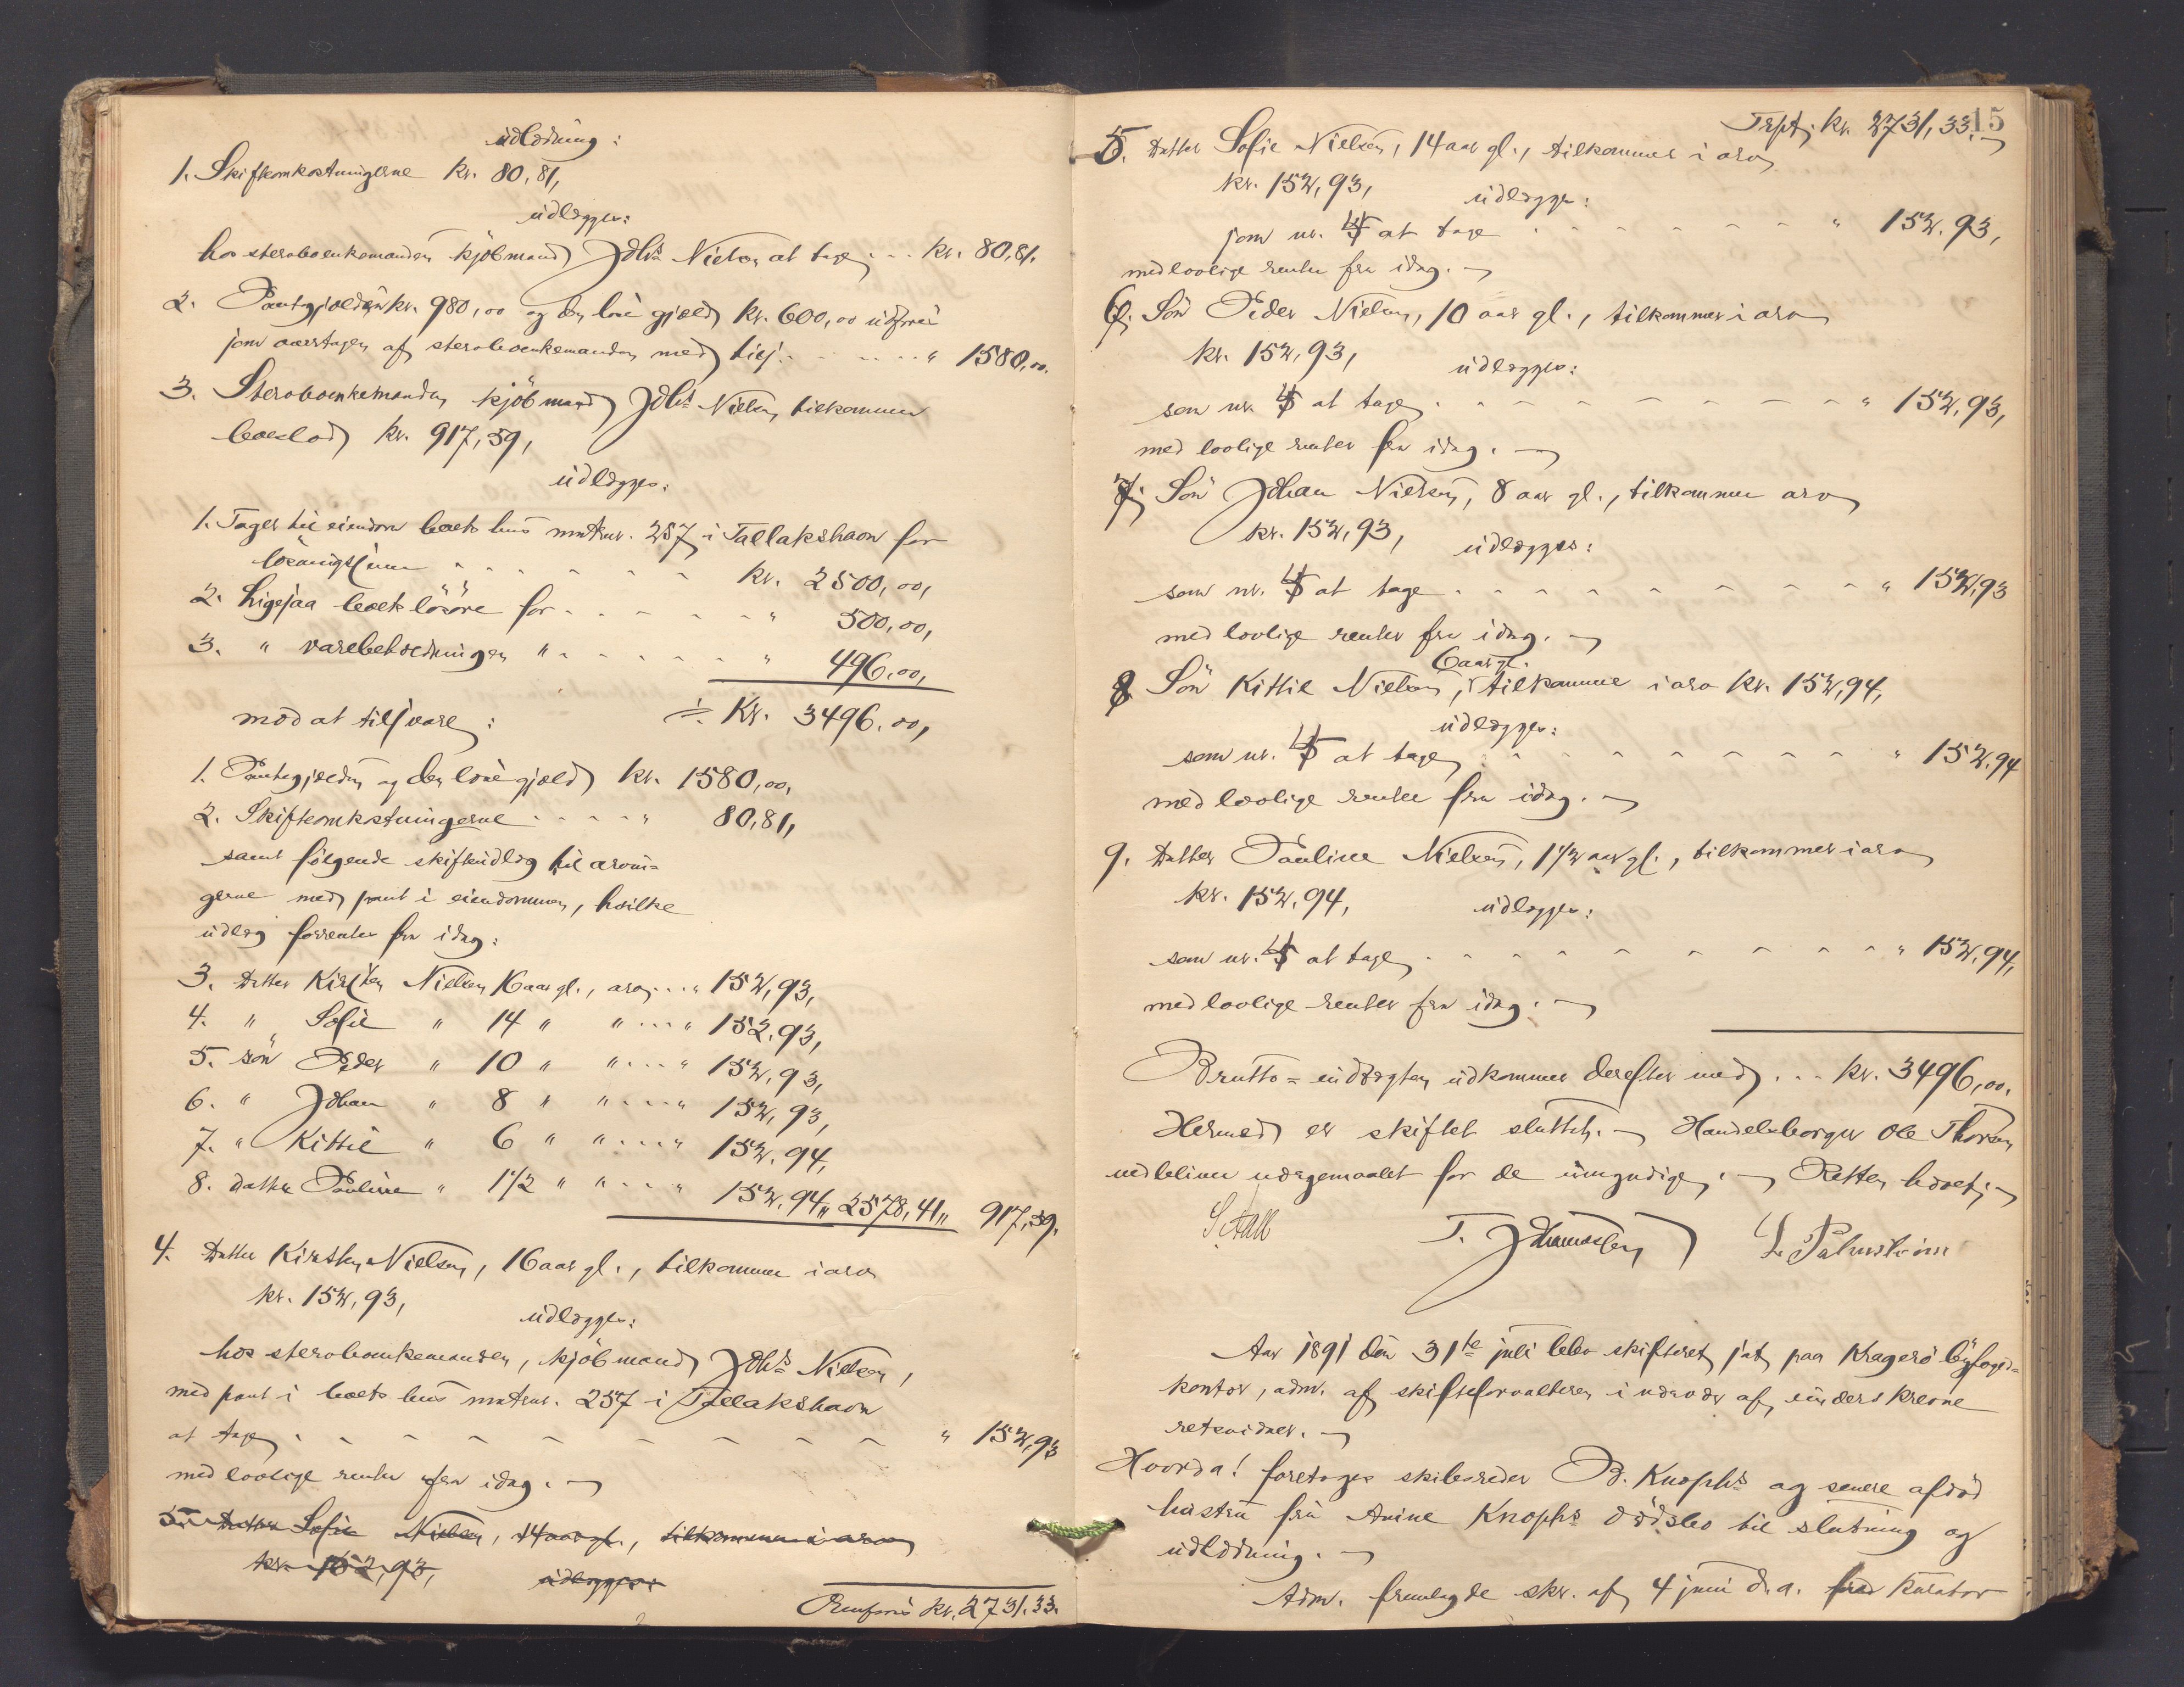 udlodning:
1. Skifteomkostningerne kr. 80,81,
udlægges:
hos sterboenkemanden kjöbmand Johs Nielsen at tage ... kr. 80,81.
2. Pantegjælden kr. 980,00 og den löse gjæld kr. 600,00 udföres
som overtagen af sterboenkemanden med tils. " 1580,00.
3. Sterboenkemanden kjöbmand Johs Nielsen tilkommer
boeslod kr. 917,59,
udlægges:
1. Tager til eiendom boets hus matrnr. 257 i Tallakshavn for
løsningssum kr. 2500,00,
2. Ligesaa boets lösöre for " 500,00,
3. " varebeholdningen " " 496,00,
mod at tilsvare: ÷ Kr. 3496,00,
1. Pantegjælden og den löse gjæld kr. 1580,00,
2. Skifteomkostningerne " 80,81,
samt følgende skifteudlæg til arvin-
gerne med pant i eiendommen, hvilke
udlæg forrentes fra idag:
3. datter Kirsten Nielsen 16 aar gl., arv ... " 152,93,
4. " Sofie " 14 " " ... " 152,93,
5. sön Peder " 10 " " ... " 152,93,
6. " Johan " 8 " " ... " 152,93,
7. " Kittil " 6 " " ... " 152,94,
8. datter Pauline " 1 1/2 " " ... " 152,94,, 2578,41,, 917,59.
4. Datter Kirsten Nielsen, 16 aar gl., tilkommer i arv
kr. 152,93,
udlægges:
hos sterboenkemanden, kjöbmand Johs Nielsen,
med pant i boets hus matrnr. 257 i Tallakshavn
at tage " 152,93
med lovlige renter fra idag.
5. Datter Sofie Nielsen, 14 aar gl., tilkommer i arv
kr. 152,93, udlægges:
Renföres kr. 2731.33.
15
Trspt. kr. 2731,33.
5. Datter Sofie Nielsen, 14 aar gl., tilkommer i arv
kr. 152,93, udlægges:
som nr. 4 at tage " 152,93,
med lovlige renter fra idag.
6. Sön Peder Nielsen, 10 aar gl., tilkommer i arv
kr. 152,93, udlægges:
som nr. 4 at tage " 152,93,
med lovlige renter fra idag.
7. Sön Johan Nielsen, 8 aar gl., tilkommer arv
kr. 152,93, udlægges:
som nr. 4 at tage " 152,93
med lovlige renter fra idag.
6 aar gl.
8 Sön Kittil Nielsen, tilkommer i arv kr. 152,94,
udlægges:
som nr. 4 at tage " 152,94
med lovlige renter fra idag.
9. Datter Pauline Nielsen, 1 1/2 aar gl., tilkommer i arv
kr. 152,94, udlægges:
som nr. 4 at tage " 152,94,
med lovlige renter fra idag.
Brutto-indtægten udkommer derefter med ... kr. 3496,00.
Hermed er skiftet sluttet. Handelsborger Ole Thorsen
vedbliver værgemaalet for de umyndige. Retten hævet.
T. Thomassen L. Palmström
Aar 1891 den 31te juli blev skifteret sat paa Kragerö byfogd-
kontor, adm. af skifteforvalteren i nærvær af underskrevne
retsvidner.
Hvorda! foretoges skibsreder B. Knophs og senere afdöd
hustru fru Anine Knophs dödsbo til slutning og
udlodning.
Adm. fremlagde skr. af 4 juni d. a. fra kurator